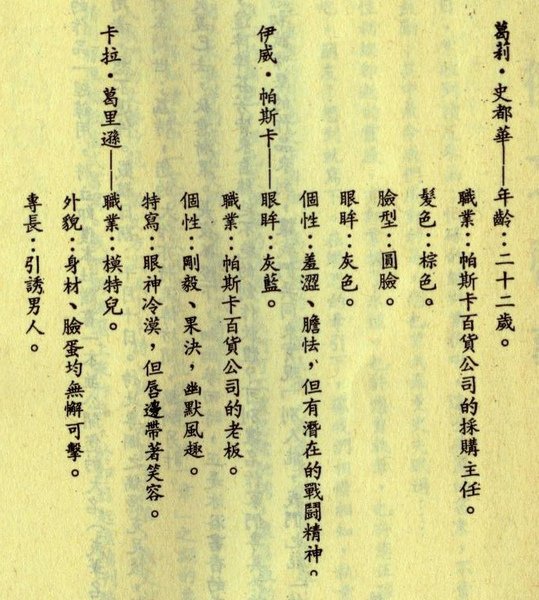 葛莉·史都華——年齡：二十二歲。
職業：帕斯卡百貨公司的採購主任。
髮色：棕色。
臉型：圓臉。
眼眸：灰色。
個性：羞澀、膽怯，但有潛在的戰鬪精神。
伊威·帕斯卡——眼眸：灰藍。
職業：帕斯卡百貨公司的老板。
個性：剛毅、果決，幽默風趣。
特寫：眼神冷漠，但唇邊帶著笑容。
卡拉·葛里遜——職業：模特兒。
外貌：身材、臉蛋均無懈可擊。
專長：引誘男人。